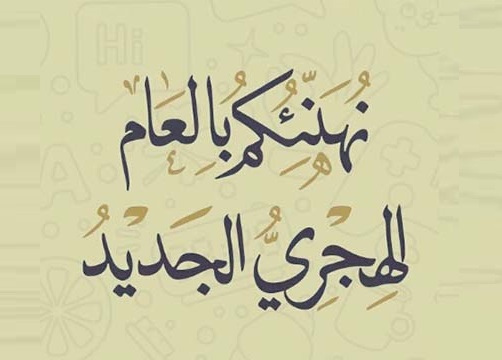 نُهَنِّئُكُمْ بِالعَام
الهِجْرِيُّ الجَدِيْدُ